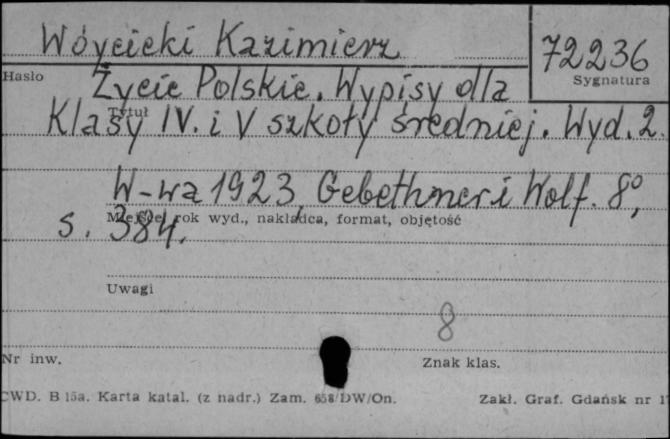 Wóycicki Kazimierz
72236
Hasło
Sygnatura
Życie Polskie. Wypisy dla
Tytuł
Klasy IV. i V szkoły średniej. Wyd. 2.
W-wa 1923, Gebethner i Wolf. 8°,
Miejsce, rok wyd., nakładca, format, objętość
s. 384.
Uwagi
8
Nr inw.
Znak klas.
CWD. B 15a. Karta katal. (z nadr.) Zam. 658/DW/On.
Zakł. Graf. Gdańsk nr 1